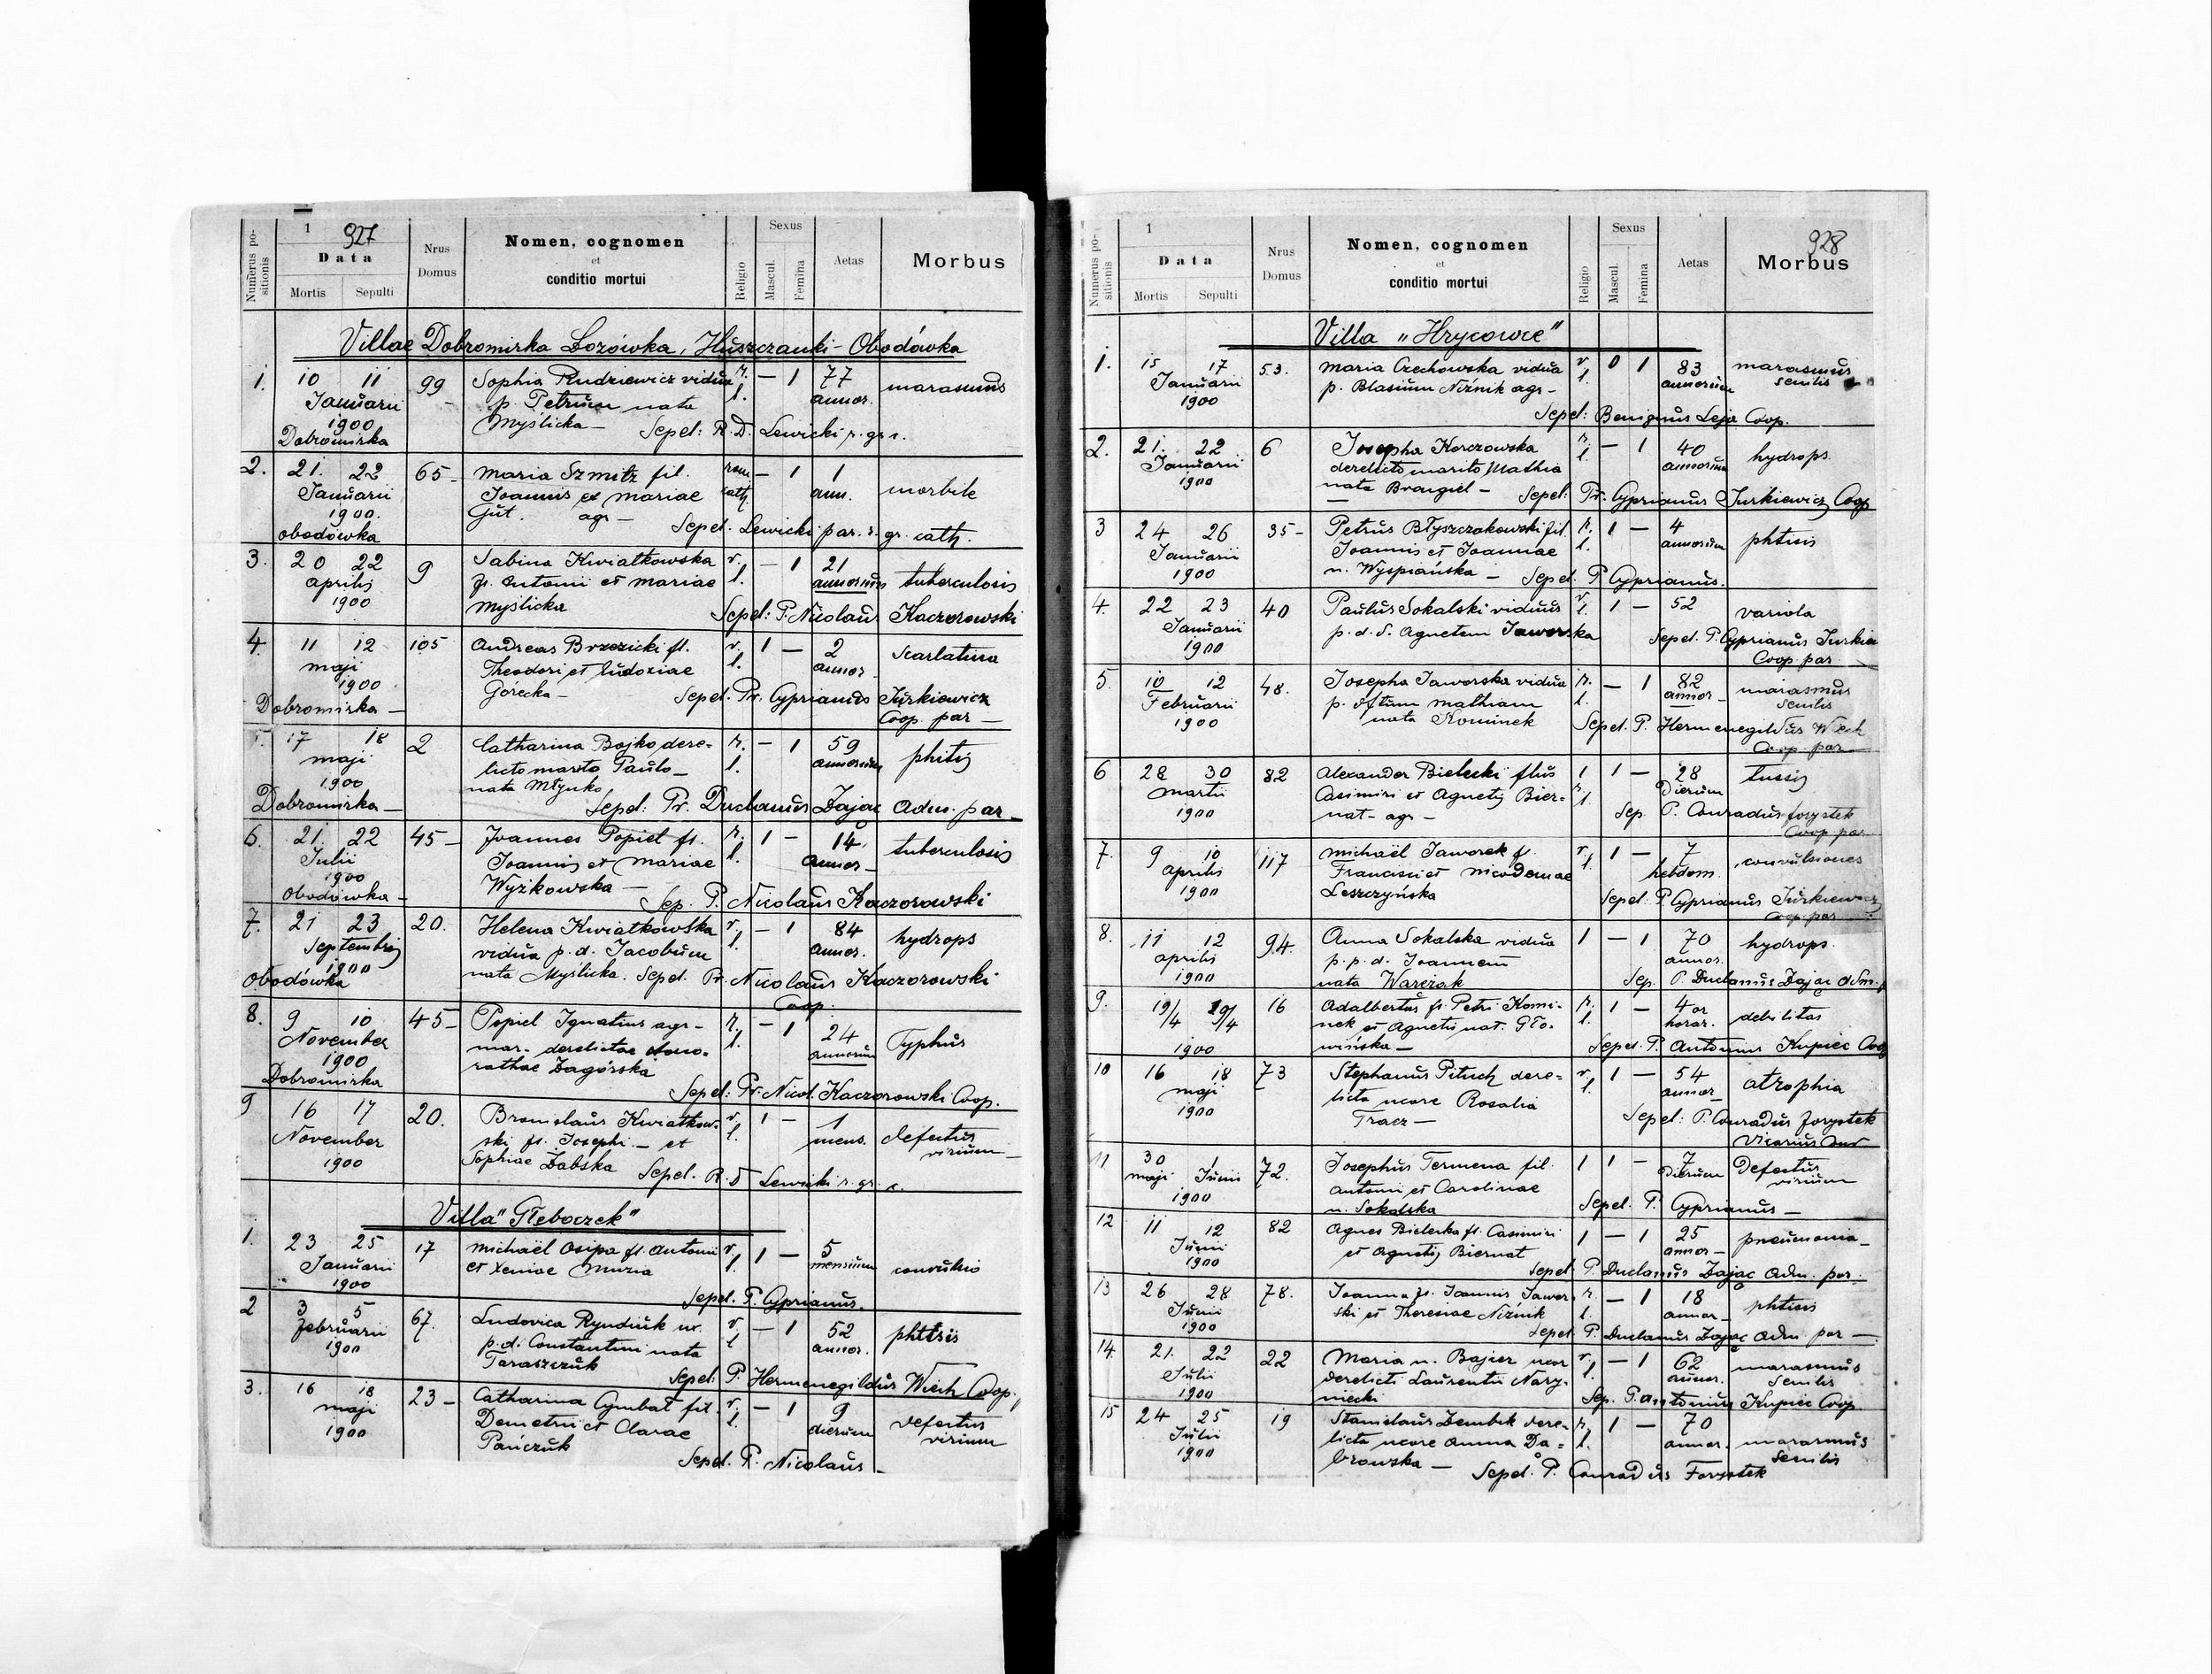 Numerus positionis
1
927
Data
Mortis Sepulti
Nrus Domus
Nomen, cognomen
et
conditio mortui
Religio
Sexus
Mascul.
Femina
Aetas
Morbus
Villae Dobromirka Łozówka, Huszczanki Obodówka
1. 10 11 99 Sophia Rudziewicz vidua r. — 1 77 marasmus
Januarii p. Petrum nata l. annor.
1900 Myślicka — Sepel: R. D. Lewicki r. gr. c.
Dobromirka
2. 21. 22 65 — Maria Szmitz fil. rom — 1 1 morbile
Januarii Joannis et Mariae cath ann.
1900. Gut. agr — Sepel. Lewicki par. r. gr. cath.
obodówka
3. 20 22 9 Sabina Kwiatkowska r. — 1 21 tuberculosis
aprilis fl. Antoni et Mariae l. annorum
1900 Myślicka Sepel: P. Nicolaus Kaczorowski
4. 11 12 105 Andreas Brzezicki fl. r. 1 — 2 Scarlatina
maji Theodori et Ludoziae l. annor.
1900 Górecka — Sepel. Pr. Cyprianus Jurkiewicz
Dobromirka — Coop. par —
5. 17 18 2 Catharina Bojko dere= r. — 1 59 phitis
maji licto marito Paulo — l. annorum
1900 nata Młynko
Dobromirka — Sepel: Pr. Duclanus Zając Adm. par —
6. 21. 22 45 — Joannes Popiel fl. r. 1 — 14 tuberculosis
Julii Joannis et Mariae l. annor —
1900 Wyżkowska —
obodówka — Sep. P. Nicolaus Kaczorowski
7. 21 23 20. Helena Kwiatkowska r. — 1 84 hydrops
Septembris vidua p. d. Jacobum l. annor.
1900 nata Myślicka. Sepel. Pr. Nicolaus Kaczorowski
Obodówka Coop.
8. 9 10 45 — Popiel Ignatius agr — r. — 1 24 Typhus
November mar. derelictae Hono= l. annorum
1900 rathae Zagórska
Dobromirka Sepel: Pr. Nicol. Kaczorowski Coop.
9 16 17 20. Bronislaus Kwiatkow= r. 1 — 1 defectus
November ski fl. Josephi — et l. mens. virium —
1900 Sophiae Żabska Sepel. R. D Lewicki r. gr. c.
Villa "Głeboczek"
1. 23 25 17 Michaël Osipa fl. Antoni r. 1 — 5 convulsio
Januarii et Xeniae Muzia l. mensium
1900 Sepel. P. Cyprianus.
2 3 5 67. Ludovica Ryndiuk ux. r. — 1 52 phtisis
Februarii p. d. Constantini nata l annor.
1900 Taraszczuk Sepel: P. Hermenegildus Wiech Coop.
3. 16 18 23 — Catharina Cymbał fil. r. — 1 9 defectus
maji Demetrii et Clarae l. dierum virium
1900 Pańczuk
Sepel. P. Nicolaus —
Numerus positionis
1
Data
Mortis Sepulti
Nrus Domus
Nomen, cognomen
et
conditio mortui
Religio
Sexus
Mascul.
Femina
Aetas
928
Morbus
Villa „Hrycowce"
1. 15 17 53. Maria Czechowska vidua r. 0 1 83 marasmus
Januarii p. Blasium Niźnik agr — l. annorum senilis
1900 Sepel: Benignus Leja Coop.
2. 21. 22 6 Josepha Korczowska r. — 1 40 hydrops.
Januarii derelicto marito Mathia l. annorum
1900 nata Brangiel — Sepel: Pr. Cyprianus Jurkiewicz Coop
3 24 26 35 — Petrus Błyszczakowski fil. r. 1 — 4 phtisis
Januarii Joannis et Joannae l. annorum
1900 n. Wyspiańska — Sepel. P Cyprianus.
4. 22 23 40 Paulus Sokalski viduus r. 1 — 52 variola
Januarii p. d. S. Agnetem Jaworska l.
1900 Sepel. P. Cyprianus Jurkie
Coop. par
5. 10 12 48. Josepha Jaworska vidua r. — 1 82 marasmus
Februarii p. dftum Mathiam l. annor — senilis
1900 nata Kominek Sepel. P. Hermenegildus Wiech
Coop. par
6 28 30 82 Alexander Bielecki flius 1 1 — 28 tussis
Martii Casimiri et Agnetis Bier= r. l. Dierum
1900 nat — agr — Sep. P. Conradus Forystek
Coop par
7. 9 10 117 Michaël Jaworek fl. r. 1 — 7 convulsiones
aprilis Francisci et Nicodemae l. hebdom.
1900 Leszczyńska Sepel: P Cyprianus Jurkiewicz
Coop. par
8. 11 12 94. Anna Sokalska vidua 1 — 1 70 hydrops.
aprilis p. p. d. Joannem annor.
1900 nata Wareżak Sep. P. Duclanus Zając Adm.
9. 19/4 19/4 16 Adalbertus fl. Petri Komi= r. 1 — 4 or debilitas
1900 nek et Agnetis nat. Gło= l. horar.
wińska — Sepel. P. Antonius Kupiec Coop
10 16 18 73 Stephanus Pituch dere= r. 1 — 54 atrophia
maji licta uxore Rosalia l. annor —
1900 Tracz — Sepel: P. Conradus Forystek
Vicarius
11. 30 1 72. Josephus Termena fil. 1 1 — 7 Defectus
maji Junii Antoni et Carolinae Dierum virium
1900 n. Sokalska Sepel. P. Cyprianus —
12 11 12 82 Agnes Bielecka fl. Casimiri 1 — 1 25 pneumonia —
Junii et Agnetis Biernat annor —
1900 Sepel P. Duclanus Zając Adm. par.
13 26 28 78. Joanna fl. Joannis Jawor= r. — 1 18 phtisis
Junii ski et Theresiae Niźnik l. annor —
1900 Sepel P. Duclanus Zając Adm. par —
14. 21. 22 22 Maria n. Bajcer uxor r. — 1 62 marasmus
Julii derelicti Laurentii Nary= l annor. senilis
1900 niecki Sep. P. Antonius Kupiec Coop.
15 24 25 19 Stanislaus Dembek dere= r. 1 — 70 marasmus
Julii licta uxore Anna Da= l. annor. senilis
1900 browska — Sepel. P. Conradus Forystek